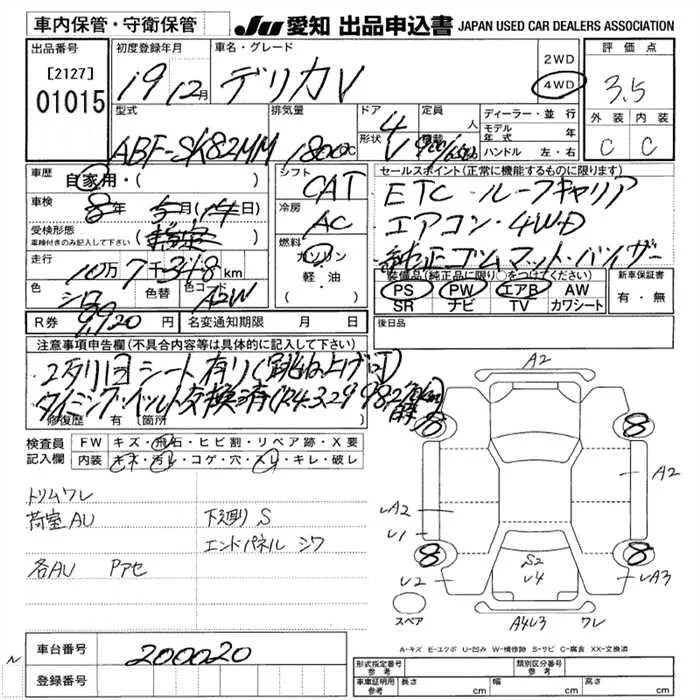 車内保管・守衛保管
JU 愛知 出品申込書 JAPAN USED CAR DEALERS ASSOCIATION
出品番号
[2127]
01015
初度登録年月
19 12月
車名・グレード
デリカV
2WD
4WD
評価点
3.5
外装 内装
C C
型式
ABF-SK82MM
排気量
1800cc
ドア
4
形状
V
定員
人
積載
ディーラー・並行
モデル年式 年
ハンドル 左・右
車歴
自家用・( )
車検
8年
月
日)
受検形態
車検付きのみ記入して下さい
走行
10万7千348km
色
シロ
色替
色コード
A2W
R券
9,120円
名変通知期限 月 日
シフト
CAT
冷房
AC
燃料
ガソリン
軽・油
セールスポイント(正常に機能するものに限ります)
ETC ルーフキャリア
エアコン・4WD
純正ゴムマット・バイザー
装備品(純正品に限り○をつけてください)
PS PW エアB AW
SR ナビ TV カワシート
新車保証書
有・無
後日品
注意事項申告欄(不具合内容等は具体的に記入して下さい)
2列目シート有り(跳ね上げ可)
タイミングベルト交換済(R4.3.29 98,2
修復歴 有 [箇所
検査員
記入欄
FW キズ・飛石・ヒビ割・リペア跡・X要
内装 キズ・汚レ・コゲ・穴・スレ・キレ・破レ
トリムワレ
荷室AU
下廻り S
エンドパネル シワ
各AU Pアセ
車台番号
200020
登録番号
A2
8
8
A2
A2
U1
8
8
U2
S2
U4
UA3
スペア
A4U3 ワレ
A-キズ E-エクボ U-凹み W-補修跡 S-サビ C-腐食 XX-交換済
形式指定番号
参考
類別区分番号
参考
車庫証明用
参考
長さ cm
幅 cm
高さ cm